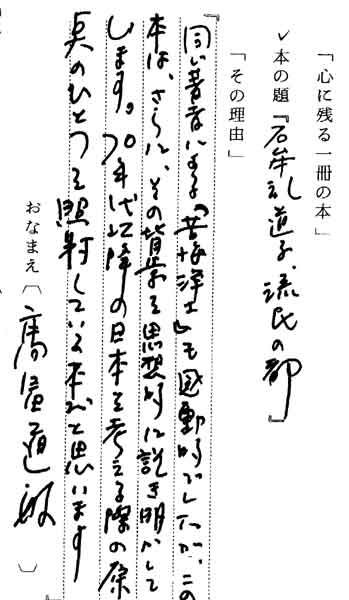 「心に残る一冊の本」
✓本の題『石牟礼道子、流民の都』
「その理由」
『同じ著者による『苦海浄土』も感動的でしたが、この
本は、さらに、その背景を思想的に説き明かして
します。70年代以降の日本を考える際の原
点のひとつを照射している本だと思います
おなまえ〔 道 〕
』